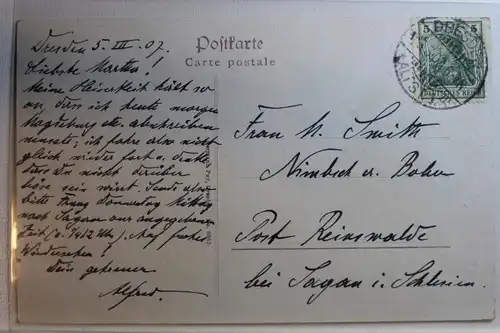 Dresden 5. III. 07.
Liebste Martha!
Meine Heiserkeit hält so
an, dass ich heute morgen
Magdeburg etc. abschreiben
musste; ich fahre also nicht
gleich wieder fort u. denke,
dass Du nicht darüber
böse sein wirst. Sende also
bitte Donnerstag Mittag
nach Sagan zur angegebenen
Zeit (a. 1/4 12 Uhr). Auf frohes
Wiedersehen!
Dein getreuer
Alfred.
Postkarte
Carte postale
5 5
DEUTSCHES REICH
DRESDEN
ALTST.
Frau M. Smith
Nimbsch a. Bober
Post Reinswalde
bei Sagan i. Schlesien.